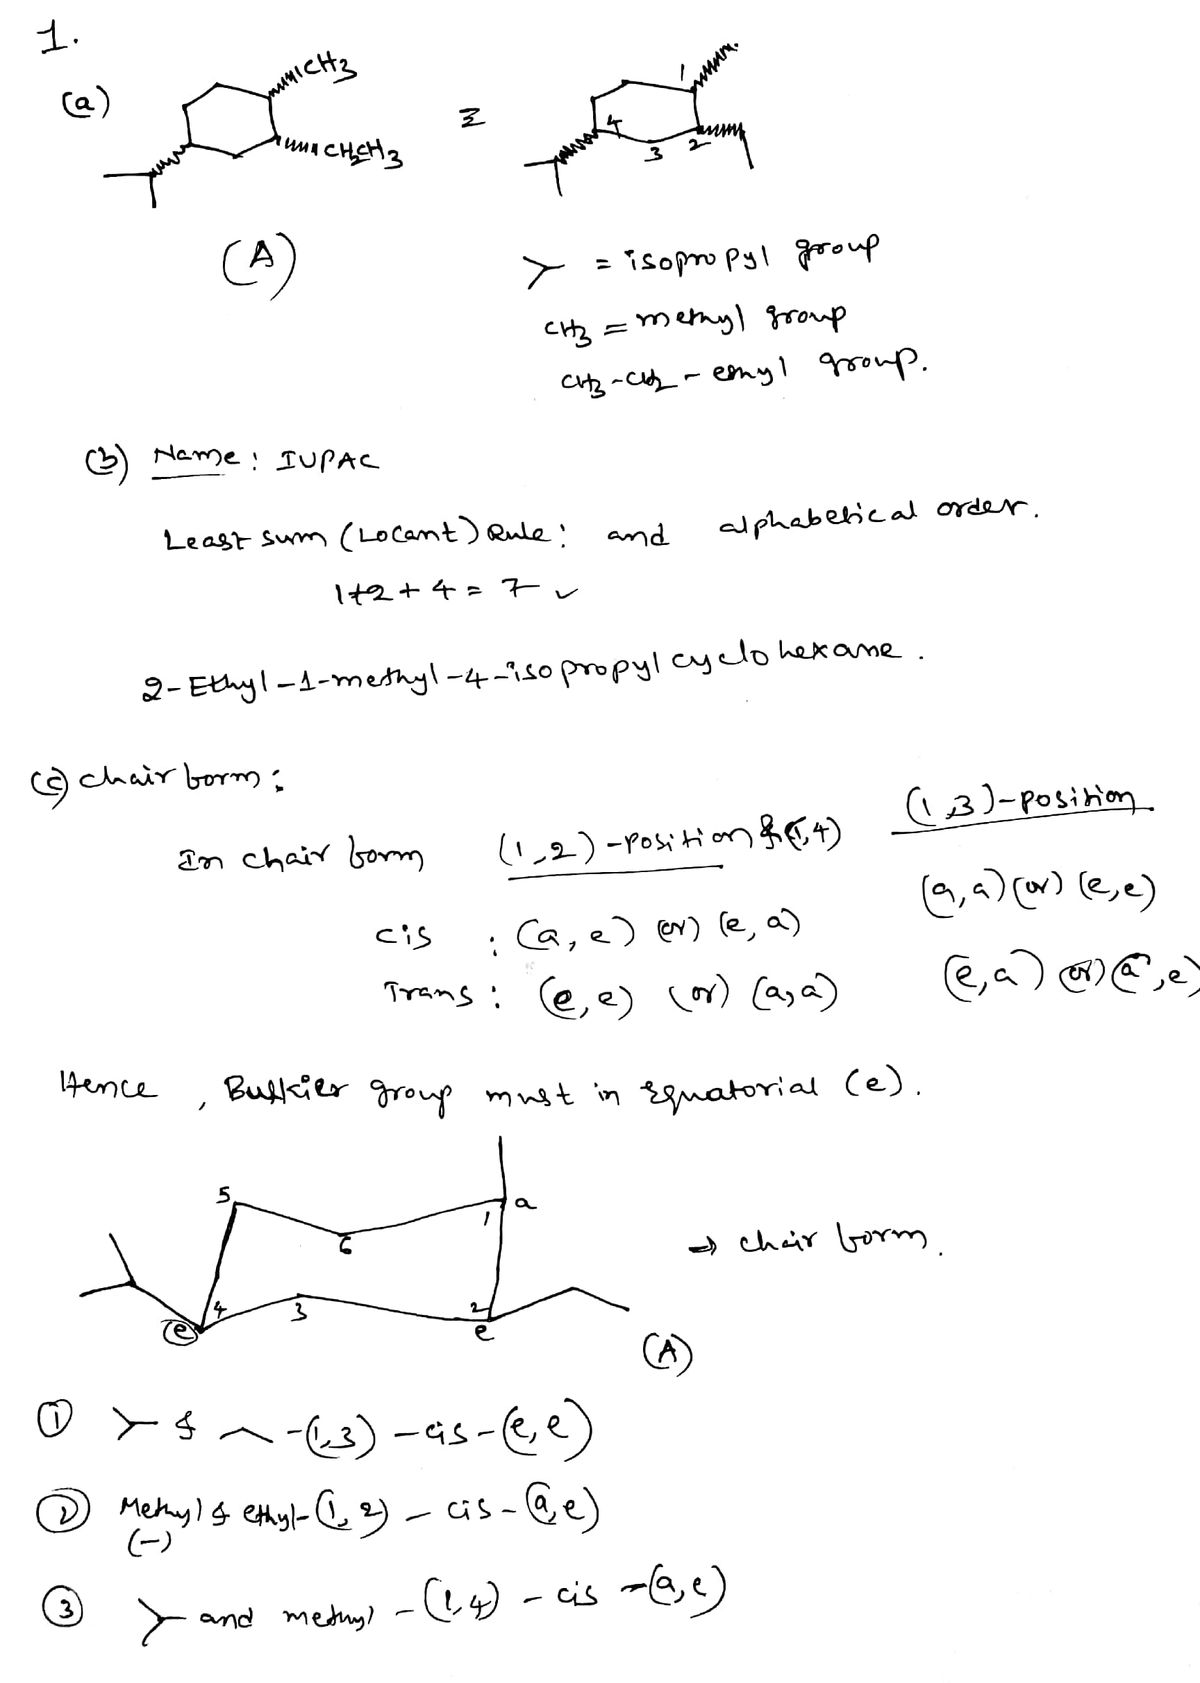 1.
(a)
CH3
CH2CH3
≡
1
2
3
4
(A)
= isopropyl group
CH3 = methyl group
CH3-CH2 - ethyl group.
(b) Name : IUPAC
Least sum (Locant) Rule : and alphabetical order.
1+2+4 = 7 ✓
2-Ethyl-1-methyl-4-isopropyl cyclohexane.
(c) chair form :
In chair form (1,2)-position & (1,4) (1,3)-position
cis : (a,e) (or) (e,a) (a,a) (or) (e,e)
Trans : (e,e) (or) (a,a) (e,a) (or) (a,e)
Hence, Bulkier group must in Equatorial (e).
5
6
1 a
4
e
3
2
e
→ chair form.
(A)
① & - (1,3) - cis - (e,e)
② Methyl & ethyl - (1,2) - cis - (a,e)
(-)
③ and methyl - (1,4) - cis - (a,e)